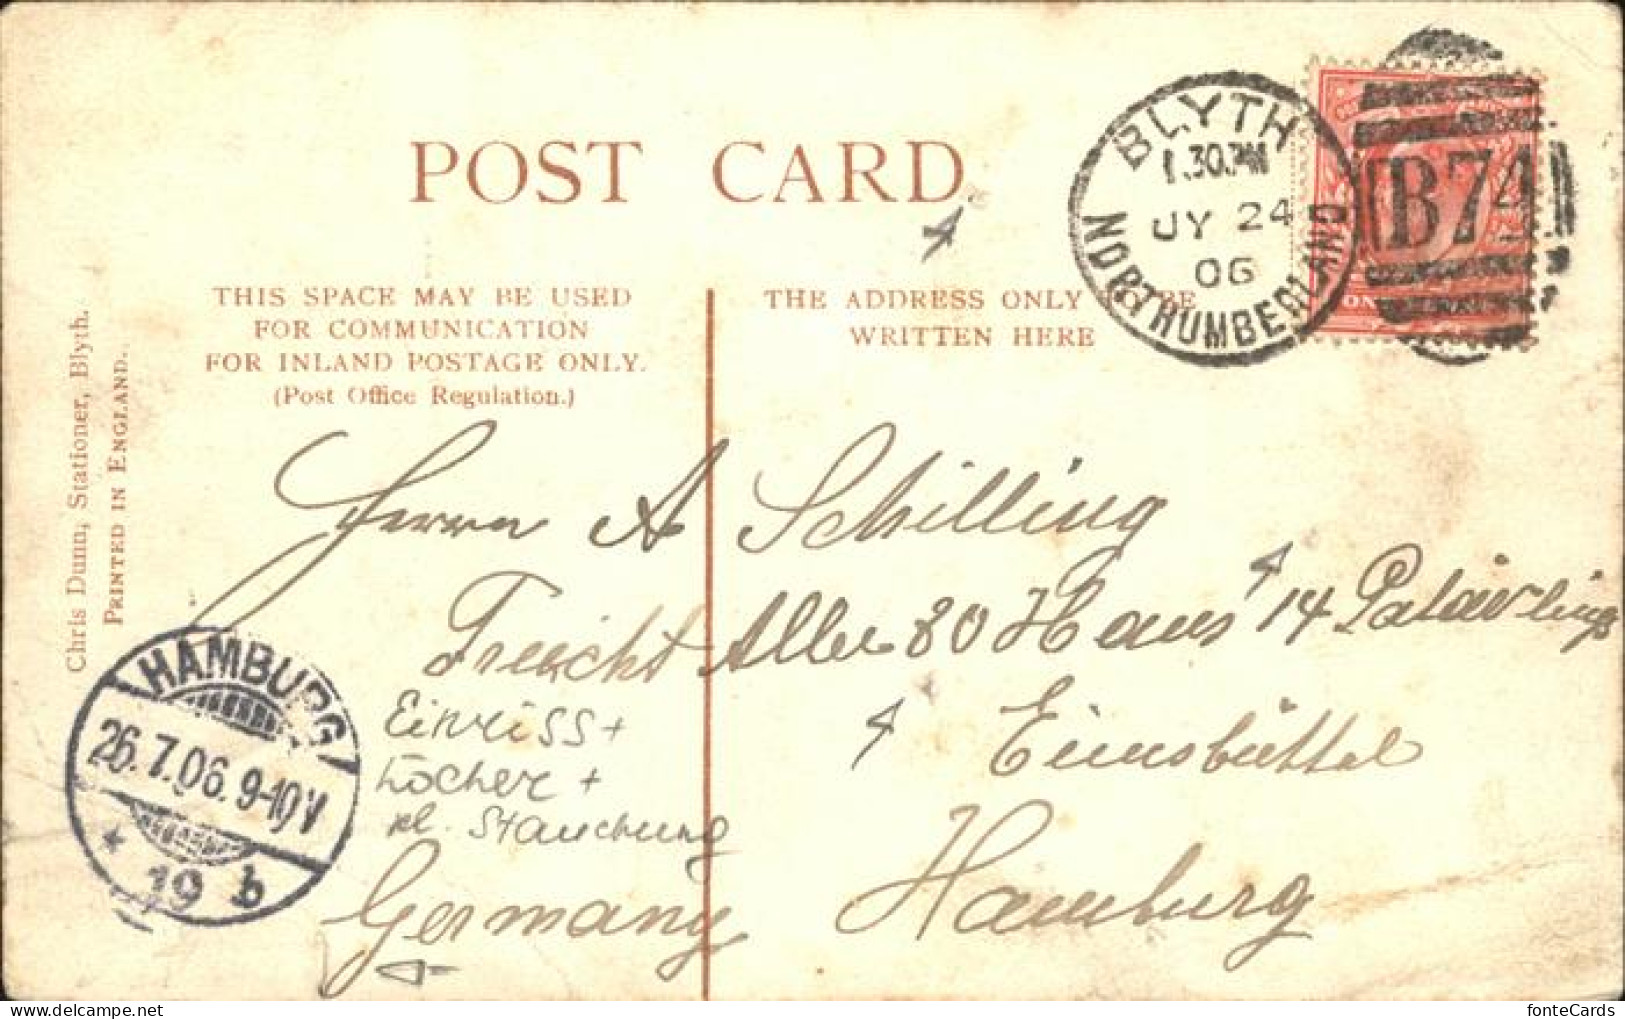 POST CARD.
THIS SPACE MAY BE USED
FOR COMMUNICATION
FOR INLAND POSTAGE ONLY.
(Post Office Regulation.)
THE ADDRESS ONLY BE
WRITTEN HERE
BLYTH
1.30.PM
JY 24
06
NORTHUMBERLAND
B74
Chris Dunn, Stationer, Blyth.
PRINTED IN ENGLAND.
Herrn A Schilling
Allee 80 Haus 14
Eimsbüttel
Hamburg
Germany
HAMBURG
26.7.06.9-10V
* 19 b
Einriss +
Löcher +
kl. Stauchung
fonteCards